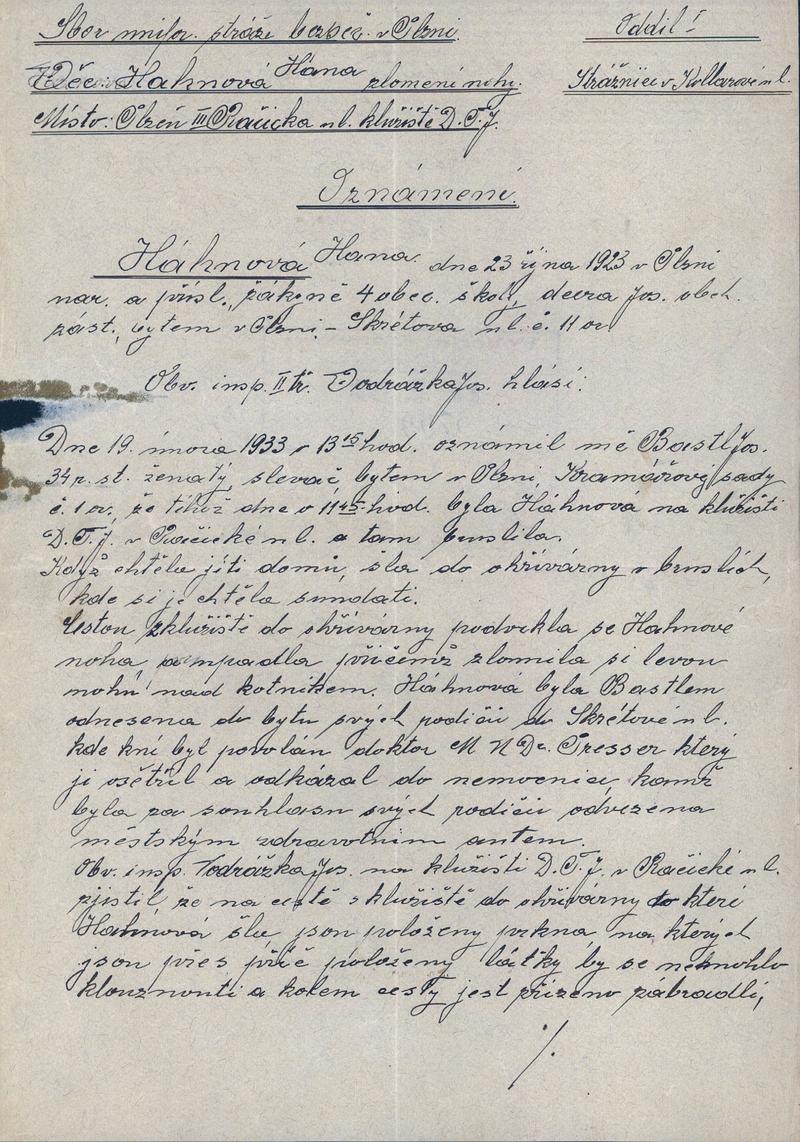 Sbor unifor. stráže bezpeč. v Plzni. Oddíl I
Věc: Hahnová Hana zlomení nohy. Strážnice v Kollárově ul.
Místo: Plzeň III Račická ul. kluziště D.T.J.
Oznámení.
Háhnová Hana dne 23 října 1923 v Plzni
nar. a přísl., žákyně 4 obec. školy, dcera Jos. obch.
zást., bytem v Plzni - Skrétova ul. č. 11 or.
Obv. insp. II tř. Vodrážka Jos. hlásí:
Dne 19. února 1933 v 13 15 hod. oznámil mě Bastl Jos.
34 r. st. ženatý, slevač, bytem v Plzni, Kramářovy sady
č. 1 or., že téhož dne v 11 45 hod. byla Háhnová na kluzišti
D.T.J. v Račické ul. a tam bruslila.
Když chtěla jíti domů, šla do ohřívárny v bruslích,
kde si je chtěla sundati.
Cestou z kluziště do ohřívárny podvrkla se Hahnové
noha, a upadla přičemž zlomila si levou
nohu nad kotníkem. Háhnová byla Bastlem
odnesena do bytu svých rodičů do Skrétové ul.
kde kní byl povolán doktor MUDr. Presser který
ji ošetřil a odkázal do nemocnice, kamž
byla za souhlasu svých rodičů odvezena
městským zdravotním autem.
Obv. insp. Vodrážka Jos. na kluzišti D.T.J. v Račické ul.
zjistil, že na cestě s kluziště do ohřívárny do které
Hahnová šla jsou položeny prkna na kterých
jsou přes příč položeny látky by se nemohlo
klouznouti a kolem cesty jest přízeno zábradlí,
./.